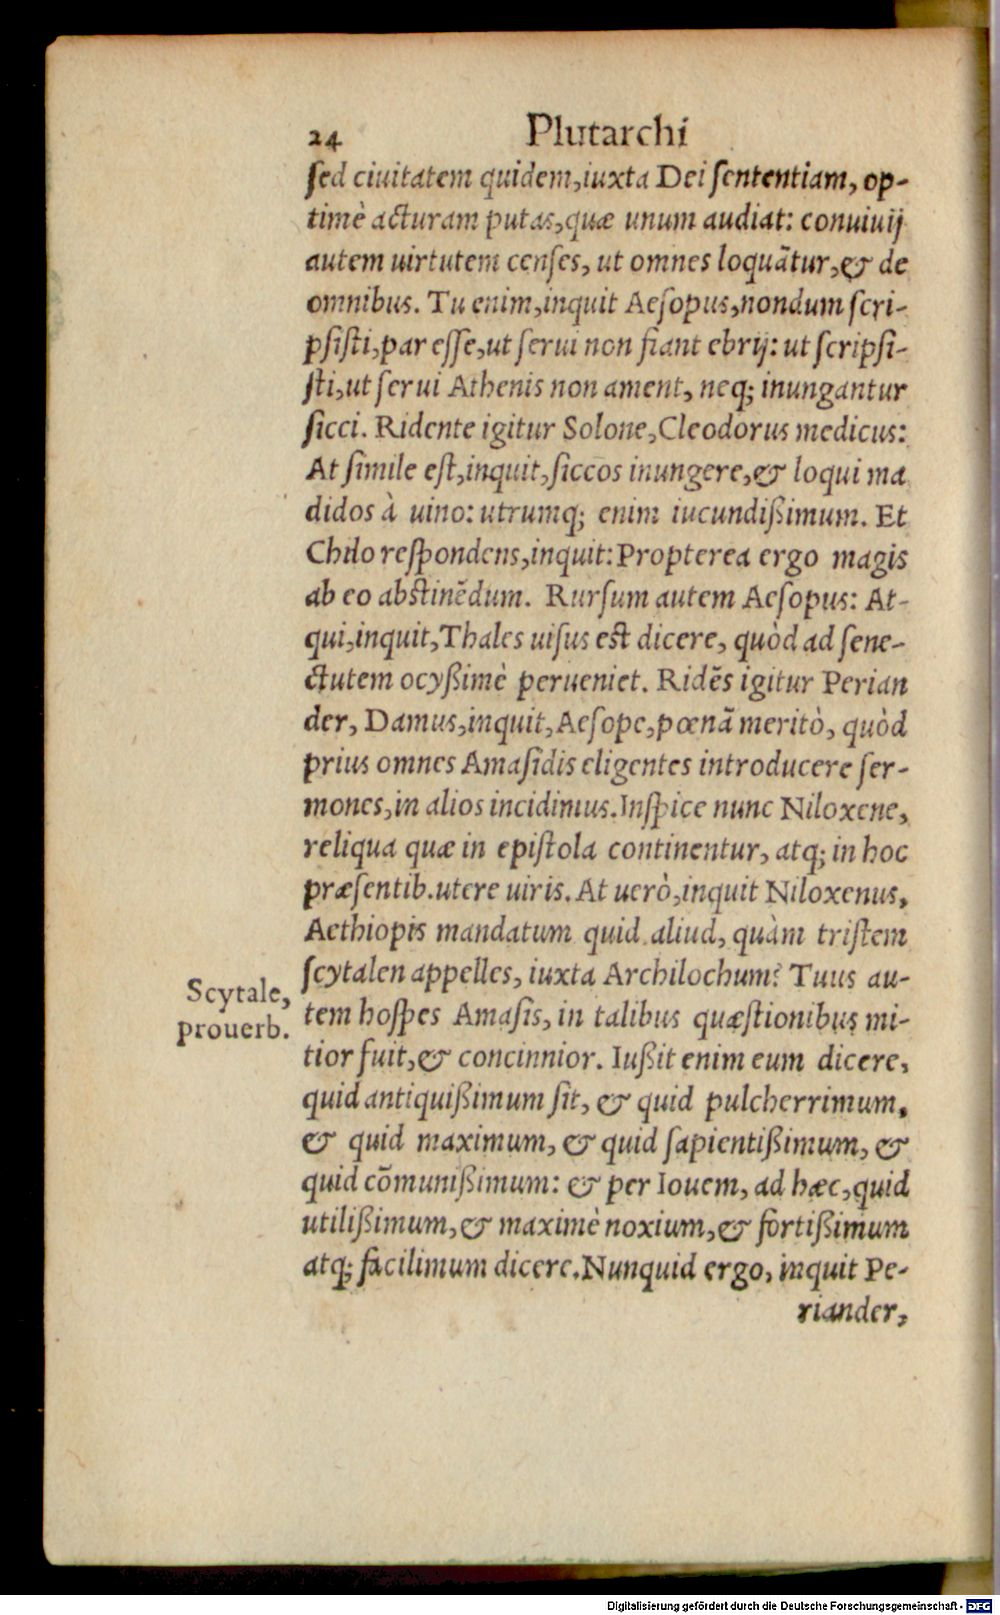 24 Plutarchi
ſed ciuitatem quidem,iuxta Dei ſententiam, op-
timè acturam putas,quæ unum audiat: conuiuij
autem uirtutem cenſes, ut omnes loquãtur,& de
omnibus. Tu enim,inquit Aeſopus,nondum ſcri-
pſiſti,par eſſe,ut ſerui non fiant ebrij: ut ſcripſi-
ſti,ut ſerui Athenis non ament, neq; inungantur
ſicci. Ridente igitur Solone,Cleodorus medicus:
At ſimile eſt,inquit,ſiccos inungere,& loqui ma
didos à uino: utrumq; enim iucundißimum. Et
Chilo reſpondens,inquit: Propterea ergo magis
ab eo abſtinẽdum. Rurſum autem Aeſopus: At-
qui,inquit,Thales uiſus eſt dicere, quòd ad ſene-
ctutem ocyßimè perueniet. Ridẽs igitur Perian
der, Damus,inquit,Aeſope,pœnã meritò, quòd
prius omnes Amaſidis eligentes introducere ſer-
mones,in alios incidimus.Inſpice nunc Niloxene,
reliqua quæ in epiſtola continentur, atq; in hoc
præſentib.utere uiris. At uerò,inquit Niloxenus,
Aethiopis mandatum quid aliud, quàm triſtem
ſcytalen appelles, iuxta Archilochum? Tuus au-
Scytale,
prouerb.
tem hoſpes Amaſis, in talibus quæſtionibus mi-
tior fuit,& concinnior. Iußit enim eum dicere,
quid antiquißimum ſit, & quid pulcherrimum,
& quid maximum, & quid ſapientißimum, &
quid cõmunißimum: & per Iouem, ad hæc,quid
utilißimum,& maximè noxium,& fortißimum
atq; facilimum dicere.Nunquid ergo, inquit Pe-
riander,
Digitalisierung gefördert durch die Deutsche Forschungsgemeinschaft - DFG